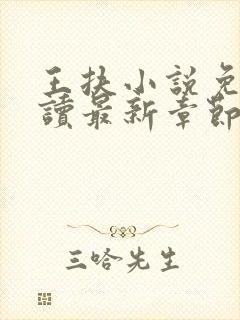 王扶小說免
讀最新章節
三哈先生